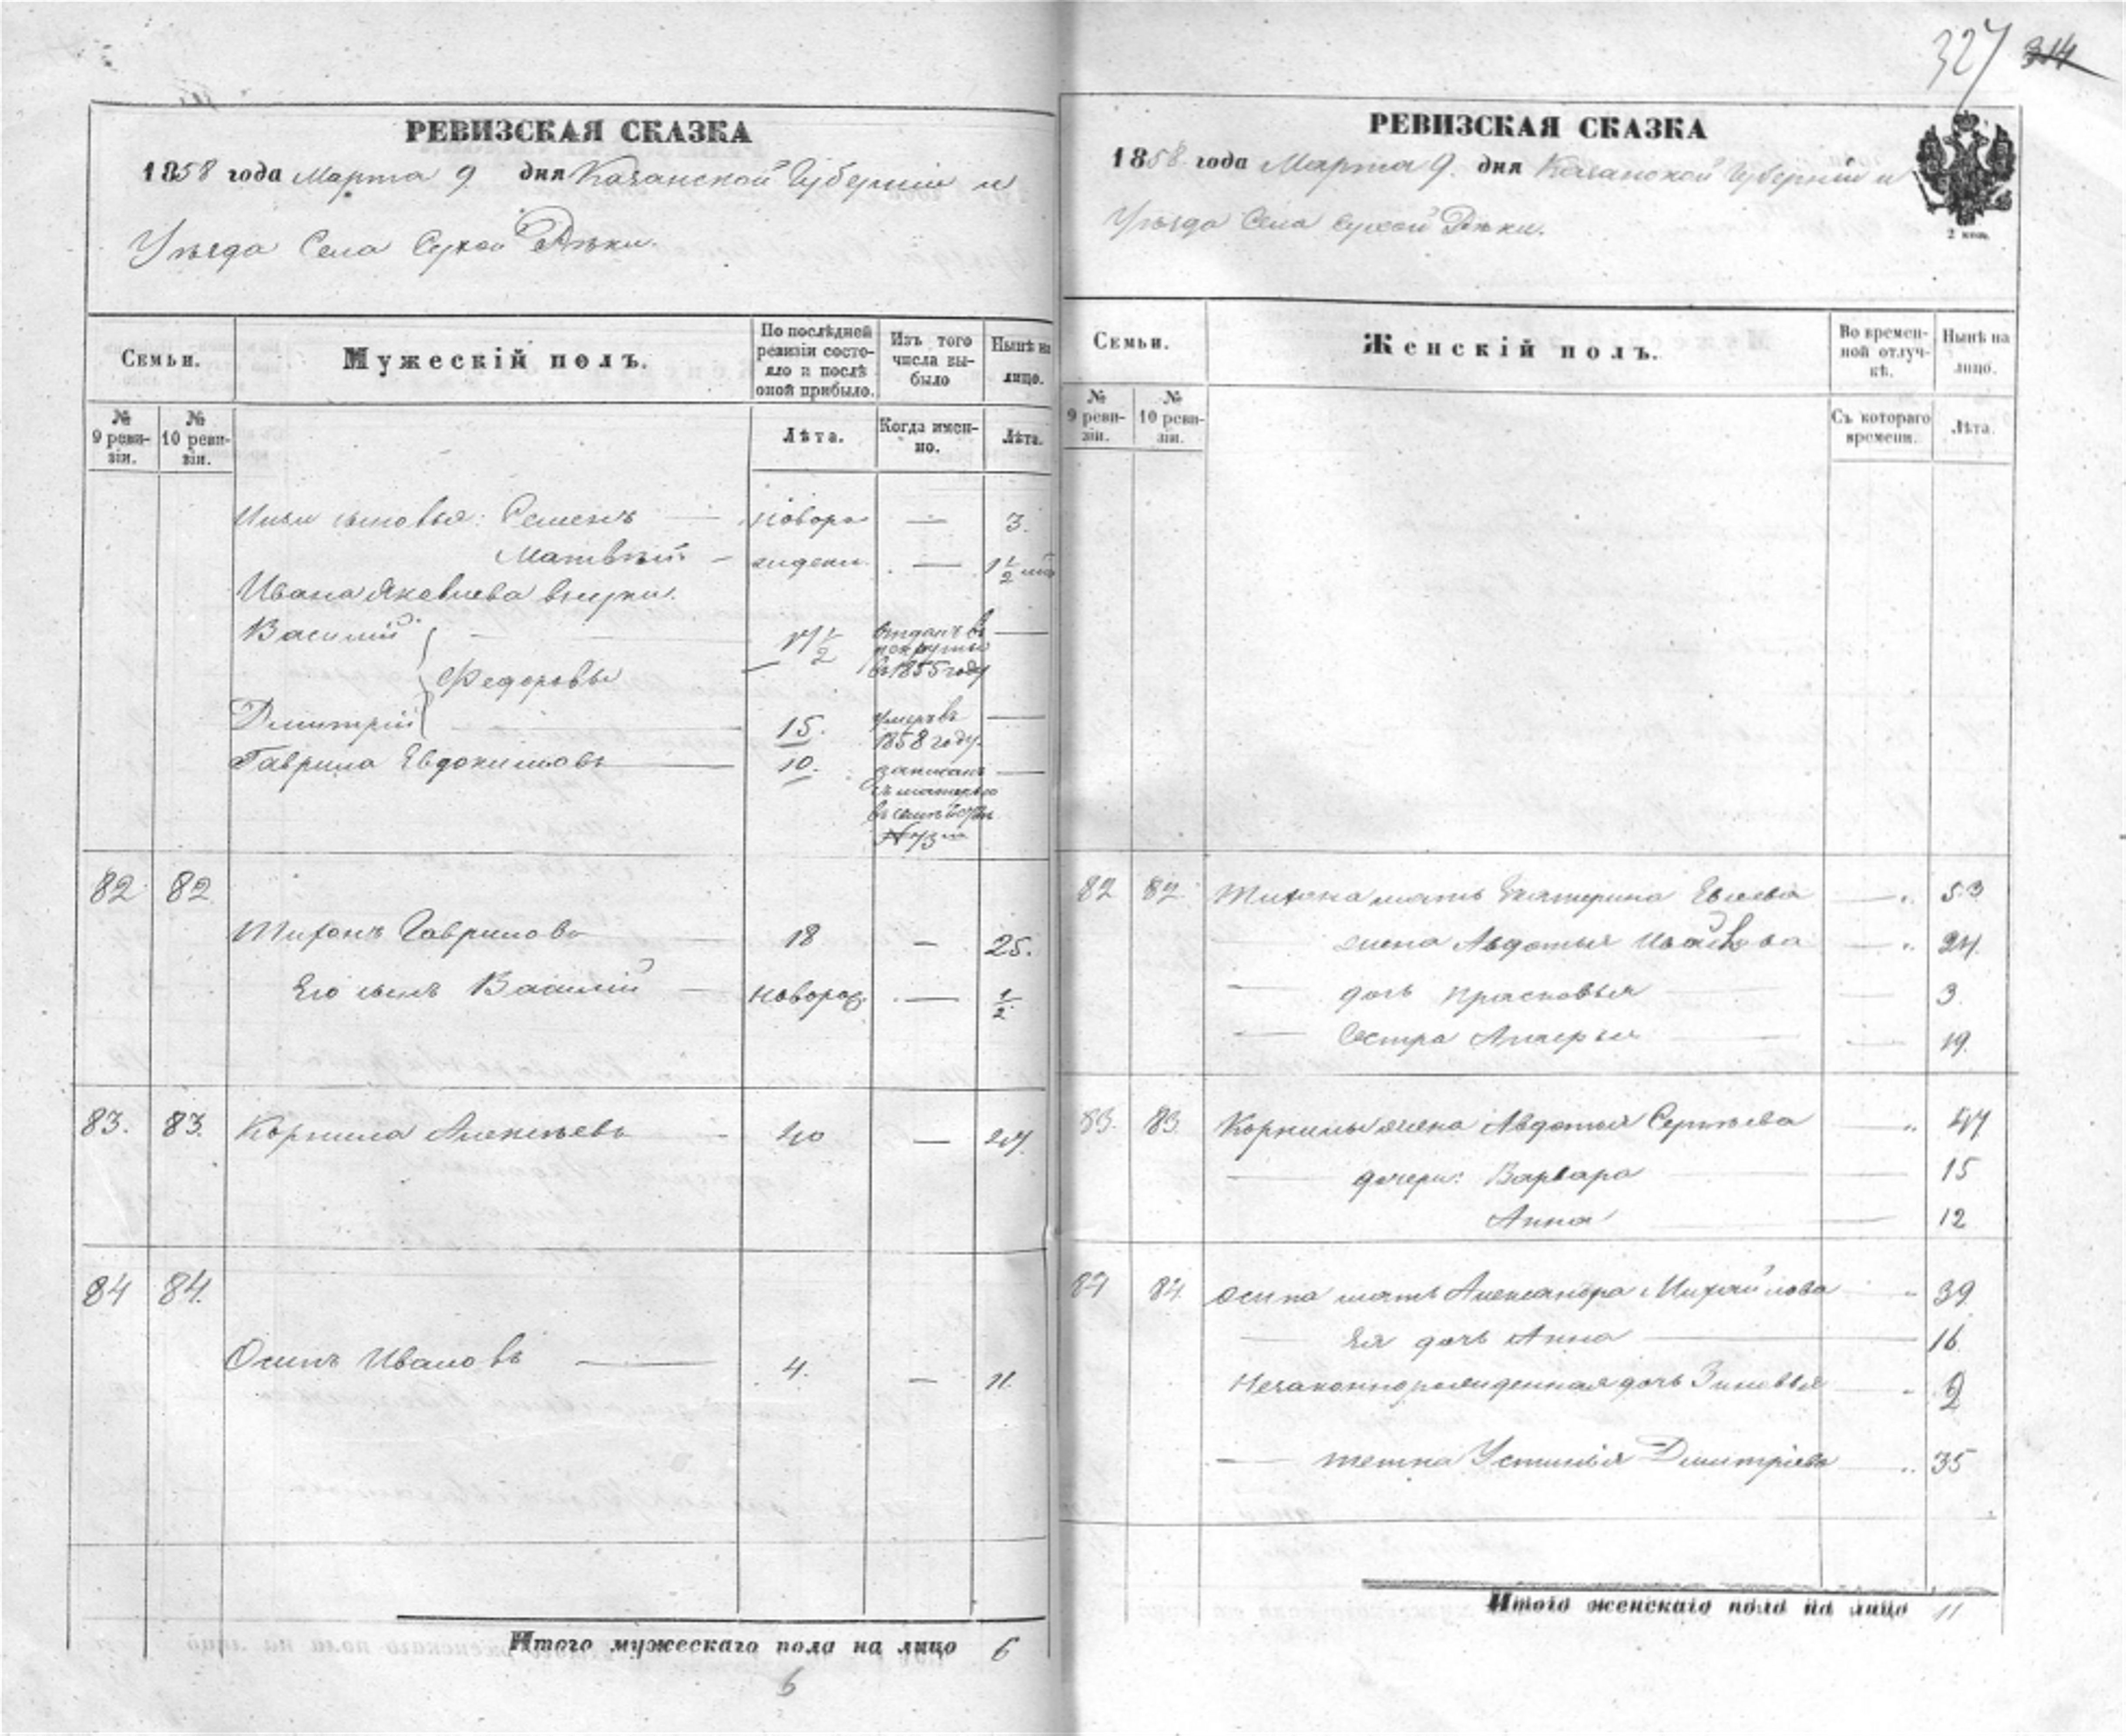 327 314
РЕВИЗСКАЯ СКАЗКА
1858 года Марта 9 дня Казанской Губерніи и
Уѣзда Села Сухой Рѣки.
Семьи.
Мужескій полъ.
По послѣдней ревизіи состояло и послѣ оной прибыло.
Изъ того числа выбыло
Нынѣ на лицо.
№ 9 ревизіи.
№ 10 ревизіи.
Лѣта.
Когда именно.
Лѣта.
сыновья: Семенъ — новоро — 3.
Матвѣй — ждены. — 1 1/2
Ивана Яковлева внуки.
Василій — отданъ въ рекруты въ 1855 году —
Федоровы
Дмитрій — 15. умеръ въ 1858 году. —
Гаврила Евдокимовъ — 10. записанъ съ матерью въ семь №73 —
82 82
Тихонъ Гавриловъ — 18 — 25.
Его сынъ Василій — новорож. — 1/2
83. 83. Корнила Алексѣевъ — 40 — 47
84 84.
Осипъ Ивановъ — 4. — 11.
Итого мужескаго пола на лицо 6
6
РЕВИЗСКАЯ СКАЗКА
1858 года Марта 9. дня Казанской Губерніи и
Уѣзда Села Сухой Рѣки.
2 коп.
Семьи.
Женскій полъ.
Во временной отлучкѣ.
Нынѣ на лицо.
№ 9 ревизіи.
№ 10 ревизіи.
Съ котораго времени.
Лѣта.
82 82. Тихона мать Екатерина — 53
жена Авдотья Иванова — 24.
— дочь Прасковья — 3.
— Сестра — 19.
83. 83. Корнилы жена Авдотья Сергѣева — 47
— дочери: Варвара — 15
Анна — 12
84 84. Осипа мать Александра Михайлова — 39
— Ея дочь Анна — 16.
Незаконнорожденная дочь Зиновья — 2
— тетка Устинья Дмитріева — 35
Итого женскаго пола на лицо 11